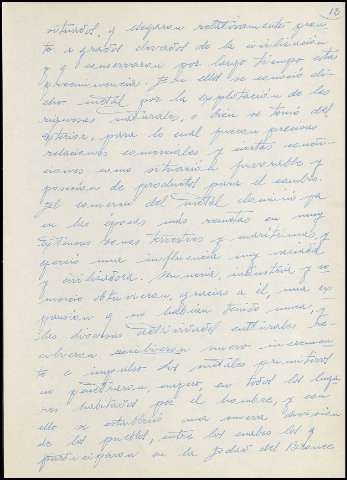 13
situados, y llegaron relativamente pron-
to a grados elevados de la civilización
y q conservaron por largo tiempo esta
preeminencia. En ellos se conoció di-
cho metal por la explotación de las
naturales, o bien se tomó del
exterior, para lo cual fueron precisas
relaciones comerciales y ciertas condi-
ciones como situación favorable y
posesión de productos para el cambio.
El comercio del metal dominó ya
en las épocas más remotas en muy
extensas zonas terrestres y marítimas, y
ejerció una influencia muy variada
y civilizadora. Minería, industria y co-
mercio obtuvieron, gracias a él, una ex-
pansión q no habían tenido nunca, y
las diversas actividades culturales re-
cibieron nuevo incremen-
to e impulso. Los metales primitivos
no penetraron, empero, en todos los luga-
res habitados por el hombre, y con
ello se estableció una nueva división
de los pueblos, entre los cuales los q
participaron en la Edad del Bronce